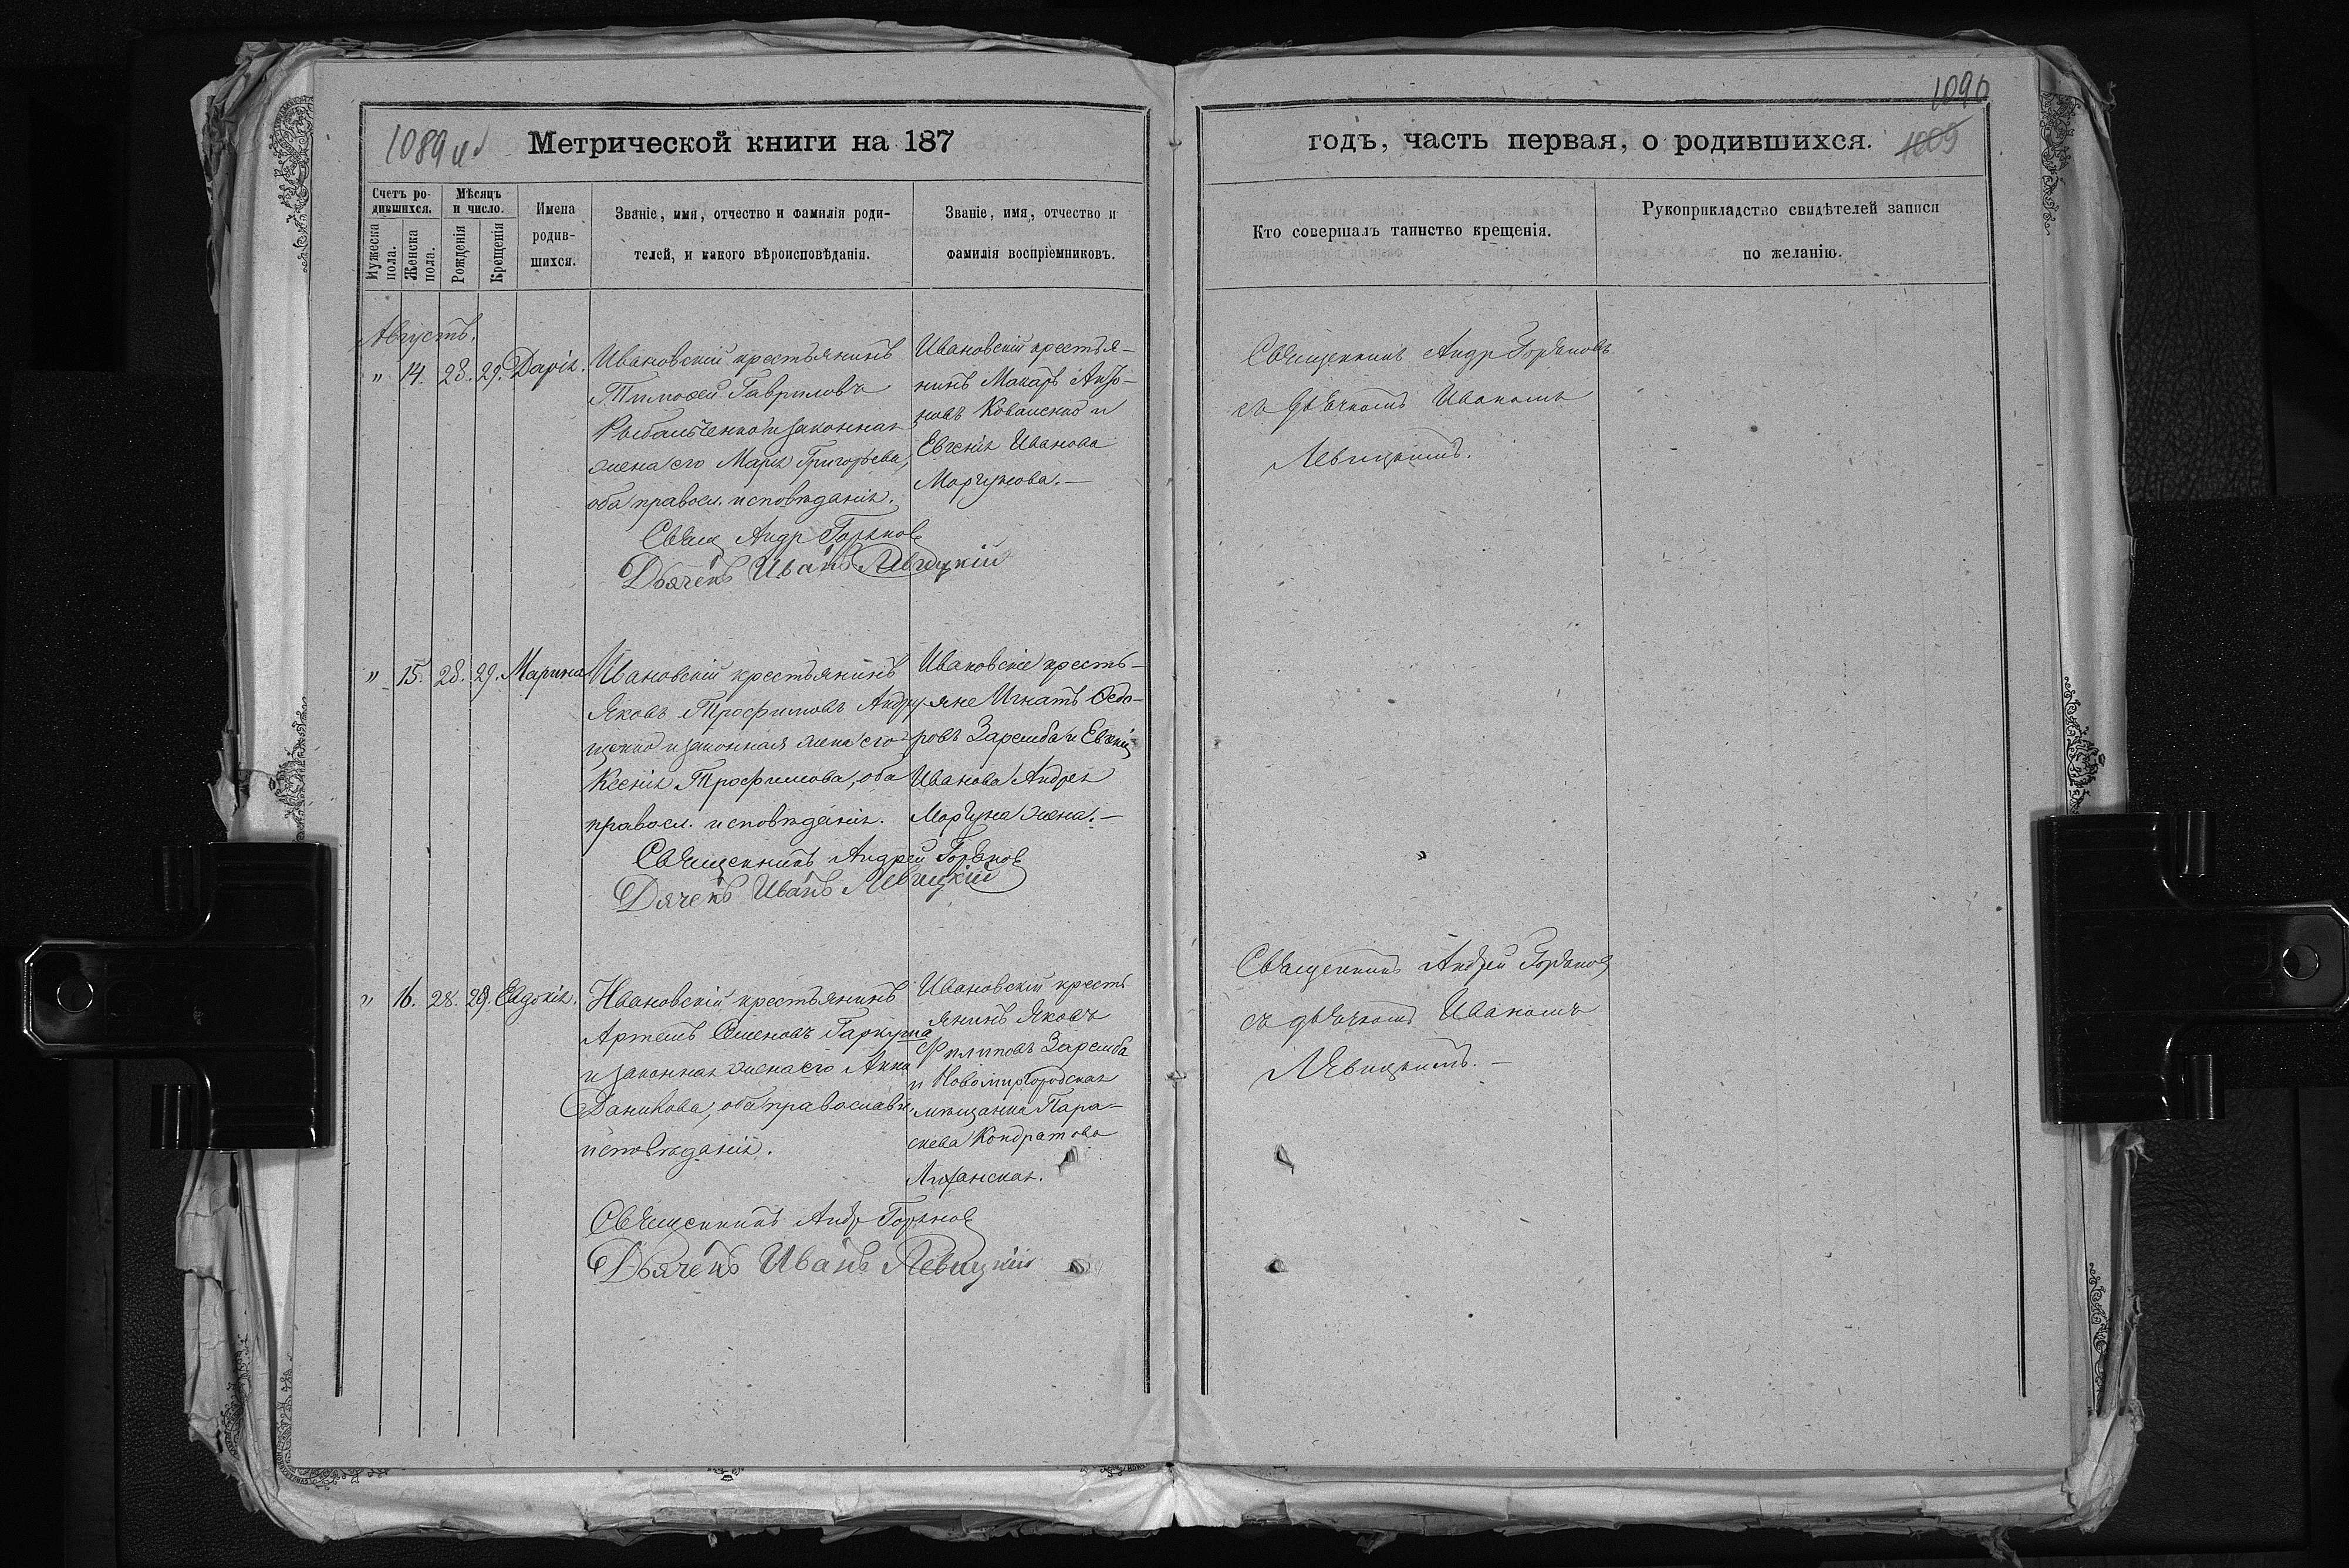 1089 
Метрической книги на 187
Счетъ ро-
дившихся.
Мужеска
пола.
Женска
пола.
Мѣсяцъ
и число.
Рожденія
Крещенія
Имена
родив-
шихся.
Званіе, имя, отчество и фамилія роди-
телей, и какого вѣроисповѣданія.
Званіе, имя, отчество и
фамилія воспріемниковъ.
Августъ.
" 14. 28. 29. Дарія.
Ивановскій крестьянинъ
Тимофей Гавриловъ
Рыбальченко и законная
жена его Марія Григорьева,
оба правосл. исповѣданія.
Ивановскій крестья-
нинъ Макаръ
новъ и
Евгенія Иванова
Моргунова.-
Свящ Андр Горяновъ
Дьячекъ Иванъ Левицкій
" 15. 28. 29. Марина
Ивановскій крестьянинъ
Яковъ Трофимовъ Андру-
щенко и законная жена его
Ксенія Трофимова, оба
правосл. исповѣданія.
Ивановскіе кресть-
яне Игнатъ Ѳедо-
ровъ Заремба и
Иванова Андрея
Моргуна жена.-
Священникъ Андрей Горяновъ
Дячекъ Иванъ Левицкій
" 16. 28. 29. Евдокія.
Ивановскій крестьянинъ
Артемъ Семеновъ Гаркуша
и законная жена его Анна
Данилова, оба православн.
исповѣданія.
Ивановскій кресть
янинъ Яковъ
Филиповъ Заремба
и Новомиргородская
мѣщанка Пара-
скева Кондратова
Священникъ Андр Горяновъ
Дьячекъ Иванъ Левицкій
1090
годъ, часть первая, о родившихся. 1009
Кто совершалъ таинство крещенія.
Рукоприкладство свидѣтелей записи
по желанію.
Священникъ Андр Горяновъ
съ дьячкомъ Иваномъ
Левицкимъ.
Священникъ Андрей Горяновъ
съ дьячкомъ Иваномъ
Левицкимъ.-